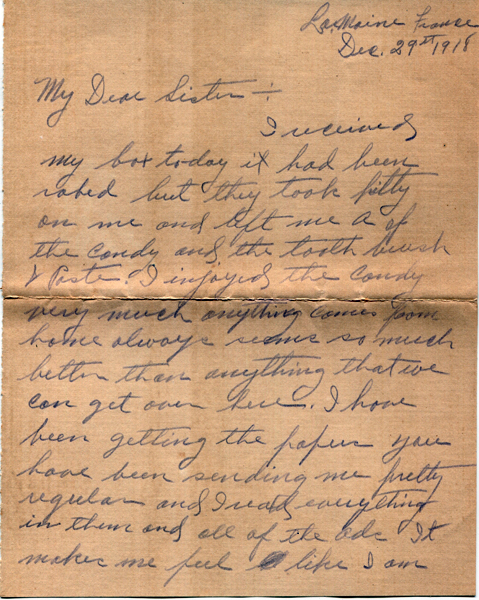 La Maine France
Dec. 29st 1918
My Dear Sister -:
I received
my box today it had been
robed but they took pitty
on me and left me a of
the candy and the tooth brush
& Paste. I injoyed the candy
very much anything comes from
home always seems so much
better than anything that we
can get over here. I have
been getting the papers you
have been sending me pretty
regular and I read everything
in them and all of the ads It
makes me feel like I am